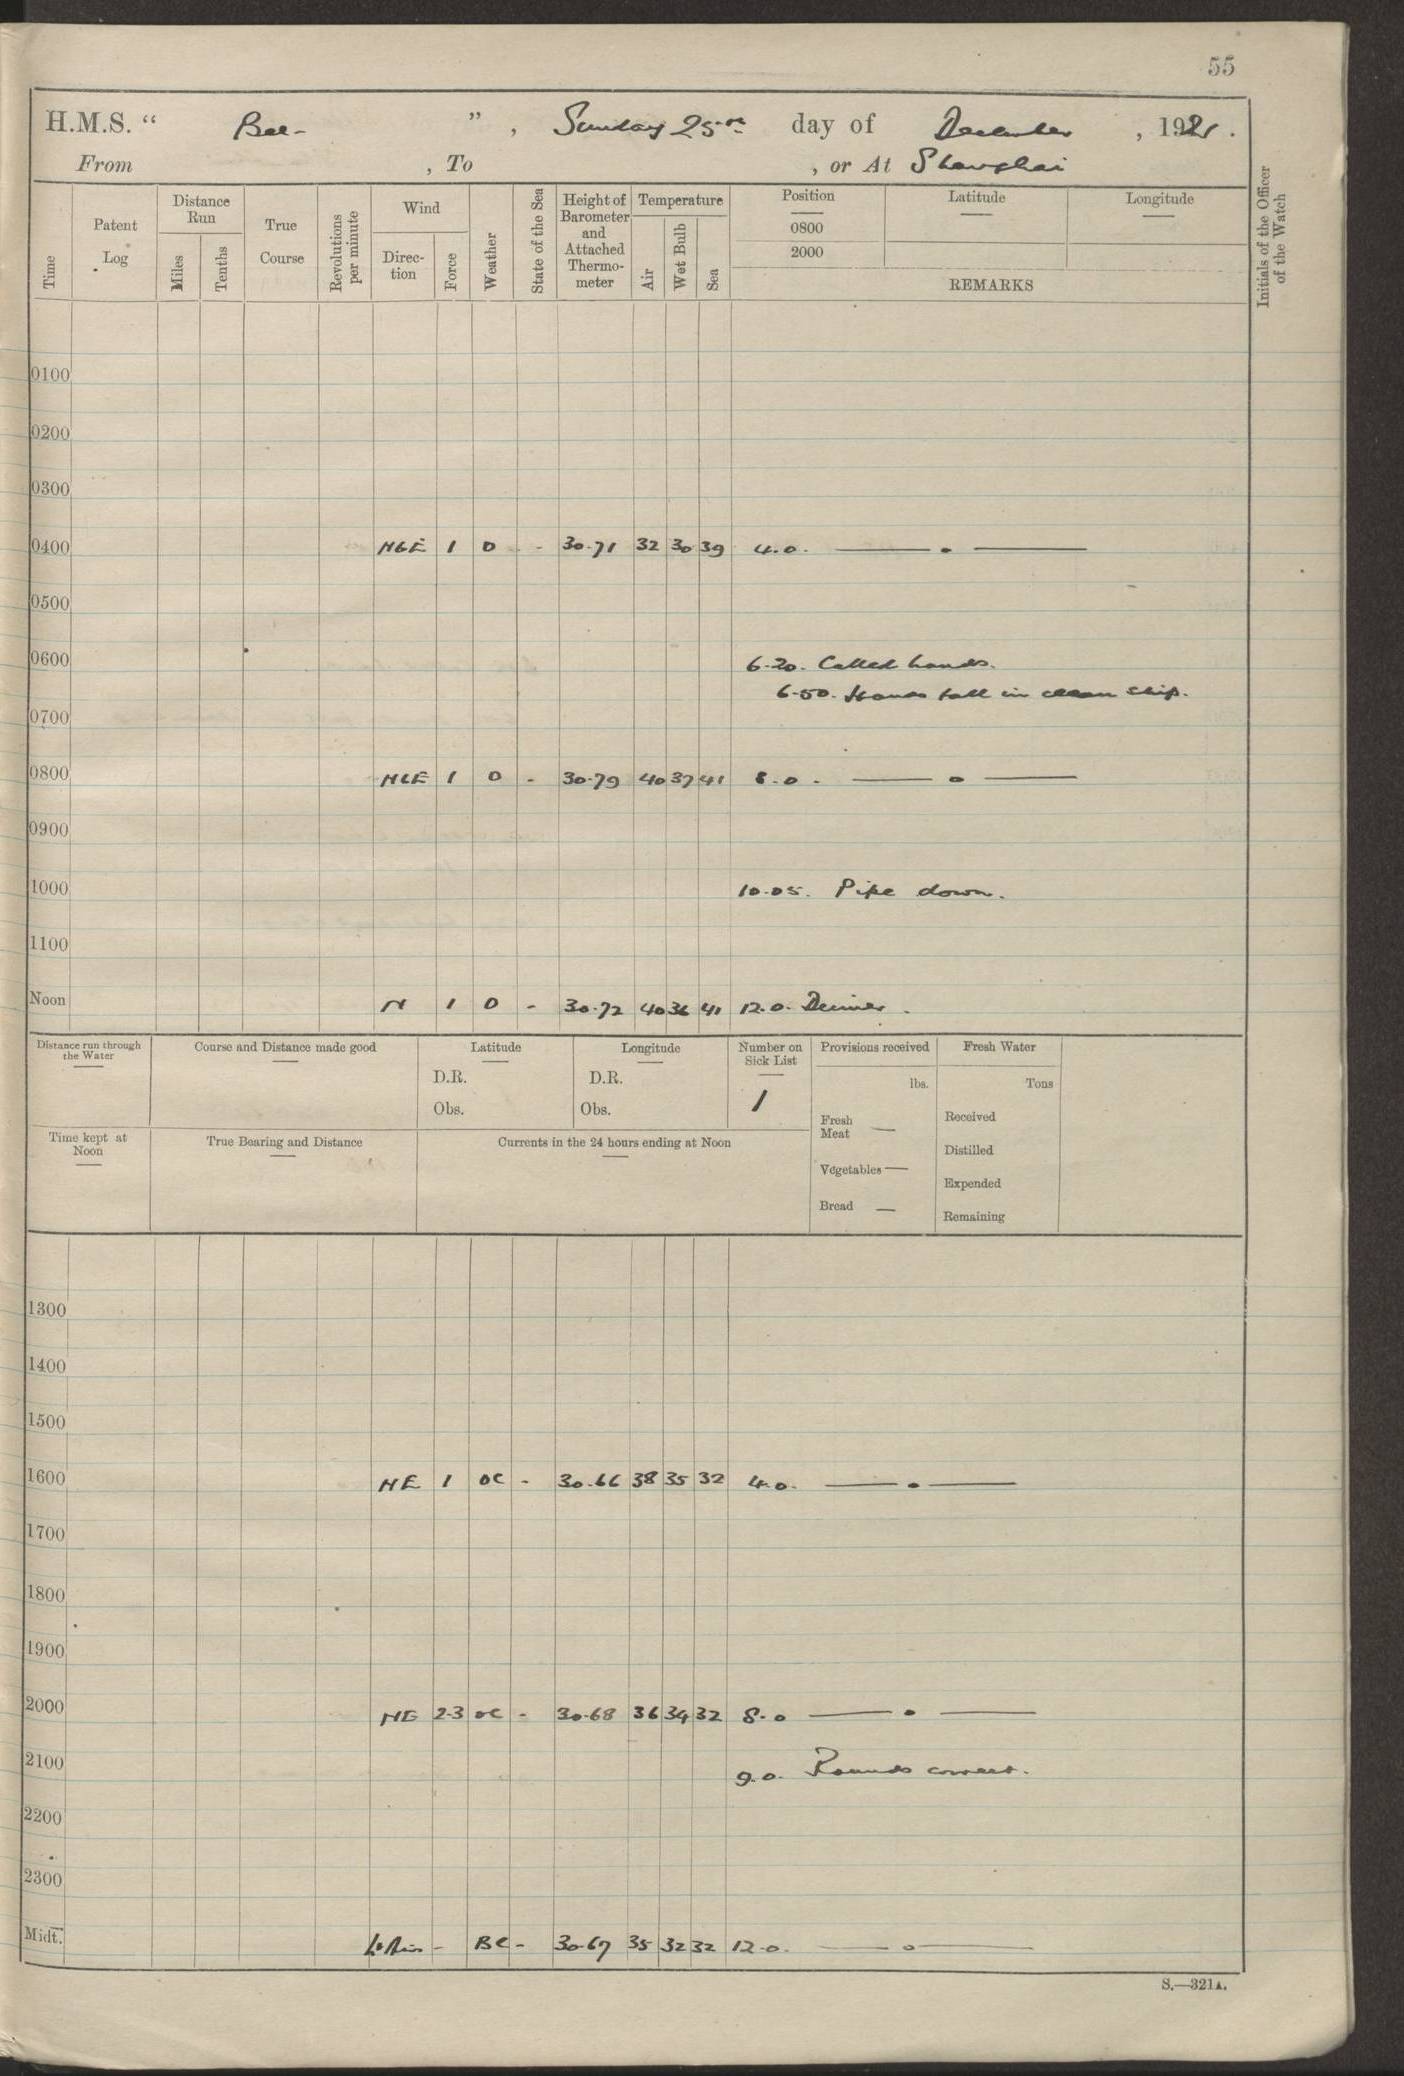 55
H.M.S. " Bee- ", Sunday 25th day of December, 1921.
From , To , or At Shanghai
Time
Patent Log
Distance Run
Miles
Tenths
True Course
Revolutions per minute
Wind
Direction
Force
Weather
State of the Sea
Height of Barometer and Attached Thermometer
Temperature
Air
Wet Bulb
Sea
Position
0800
2000
Latitude
Longitude
REMARKS
Initials of the Officer of the Watch
0100
0200
0300
0400 NbE 1 O - 30.71 32 30 39 4.0. — . —
0500
0600 6.20. Called hands.
6.50. Hands fall in clean ship.
0700
0800 NbE 1 O - 30.79 40 37 41 8.0. — o —
0900
1000 10.05. Pipe down.
1100
Noon N 1 O - 30.72 40 36 41 12.0. Dinner.
Distance run through the Water
Course and Distance made good
Latitude
D.R.
Obs.
Longitude
D.R.
Obs.
Number on Sick List
1
Provisions received
lbs.
Fresh Meat —
Vegetables —
Bread —
Fresh Water
Tons
Received
Distilled
Expended
Remaining
Time kept at Noon
True Bearing and Distance
Currents in the 24 hours ending at Noon
1300
1400
1500
1600 NE 1 OC - 30.66 38 35 32 4.0. — . —
1700
1800
1900
2000 NE 2-3 OC - 30.68 36 34 32 8.0 — . —
2100 9.0. Rounds correct.
2200
2300
Midt. Lt Airs - BC - 30.67 35 32 32 12.0. — o —
S.—321A.